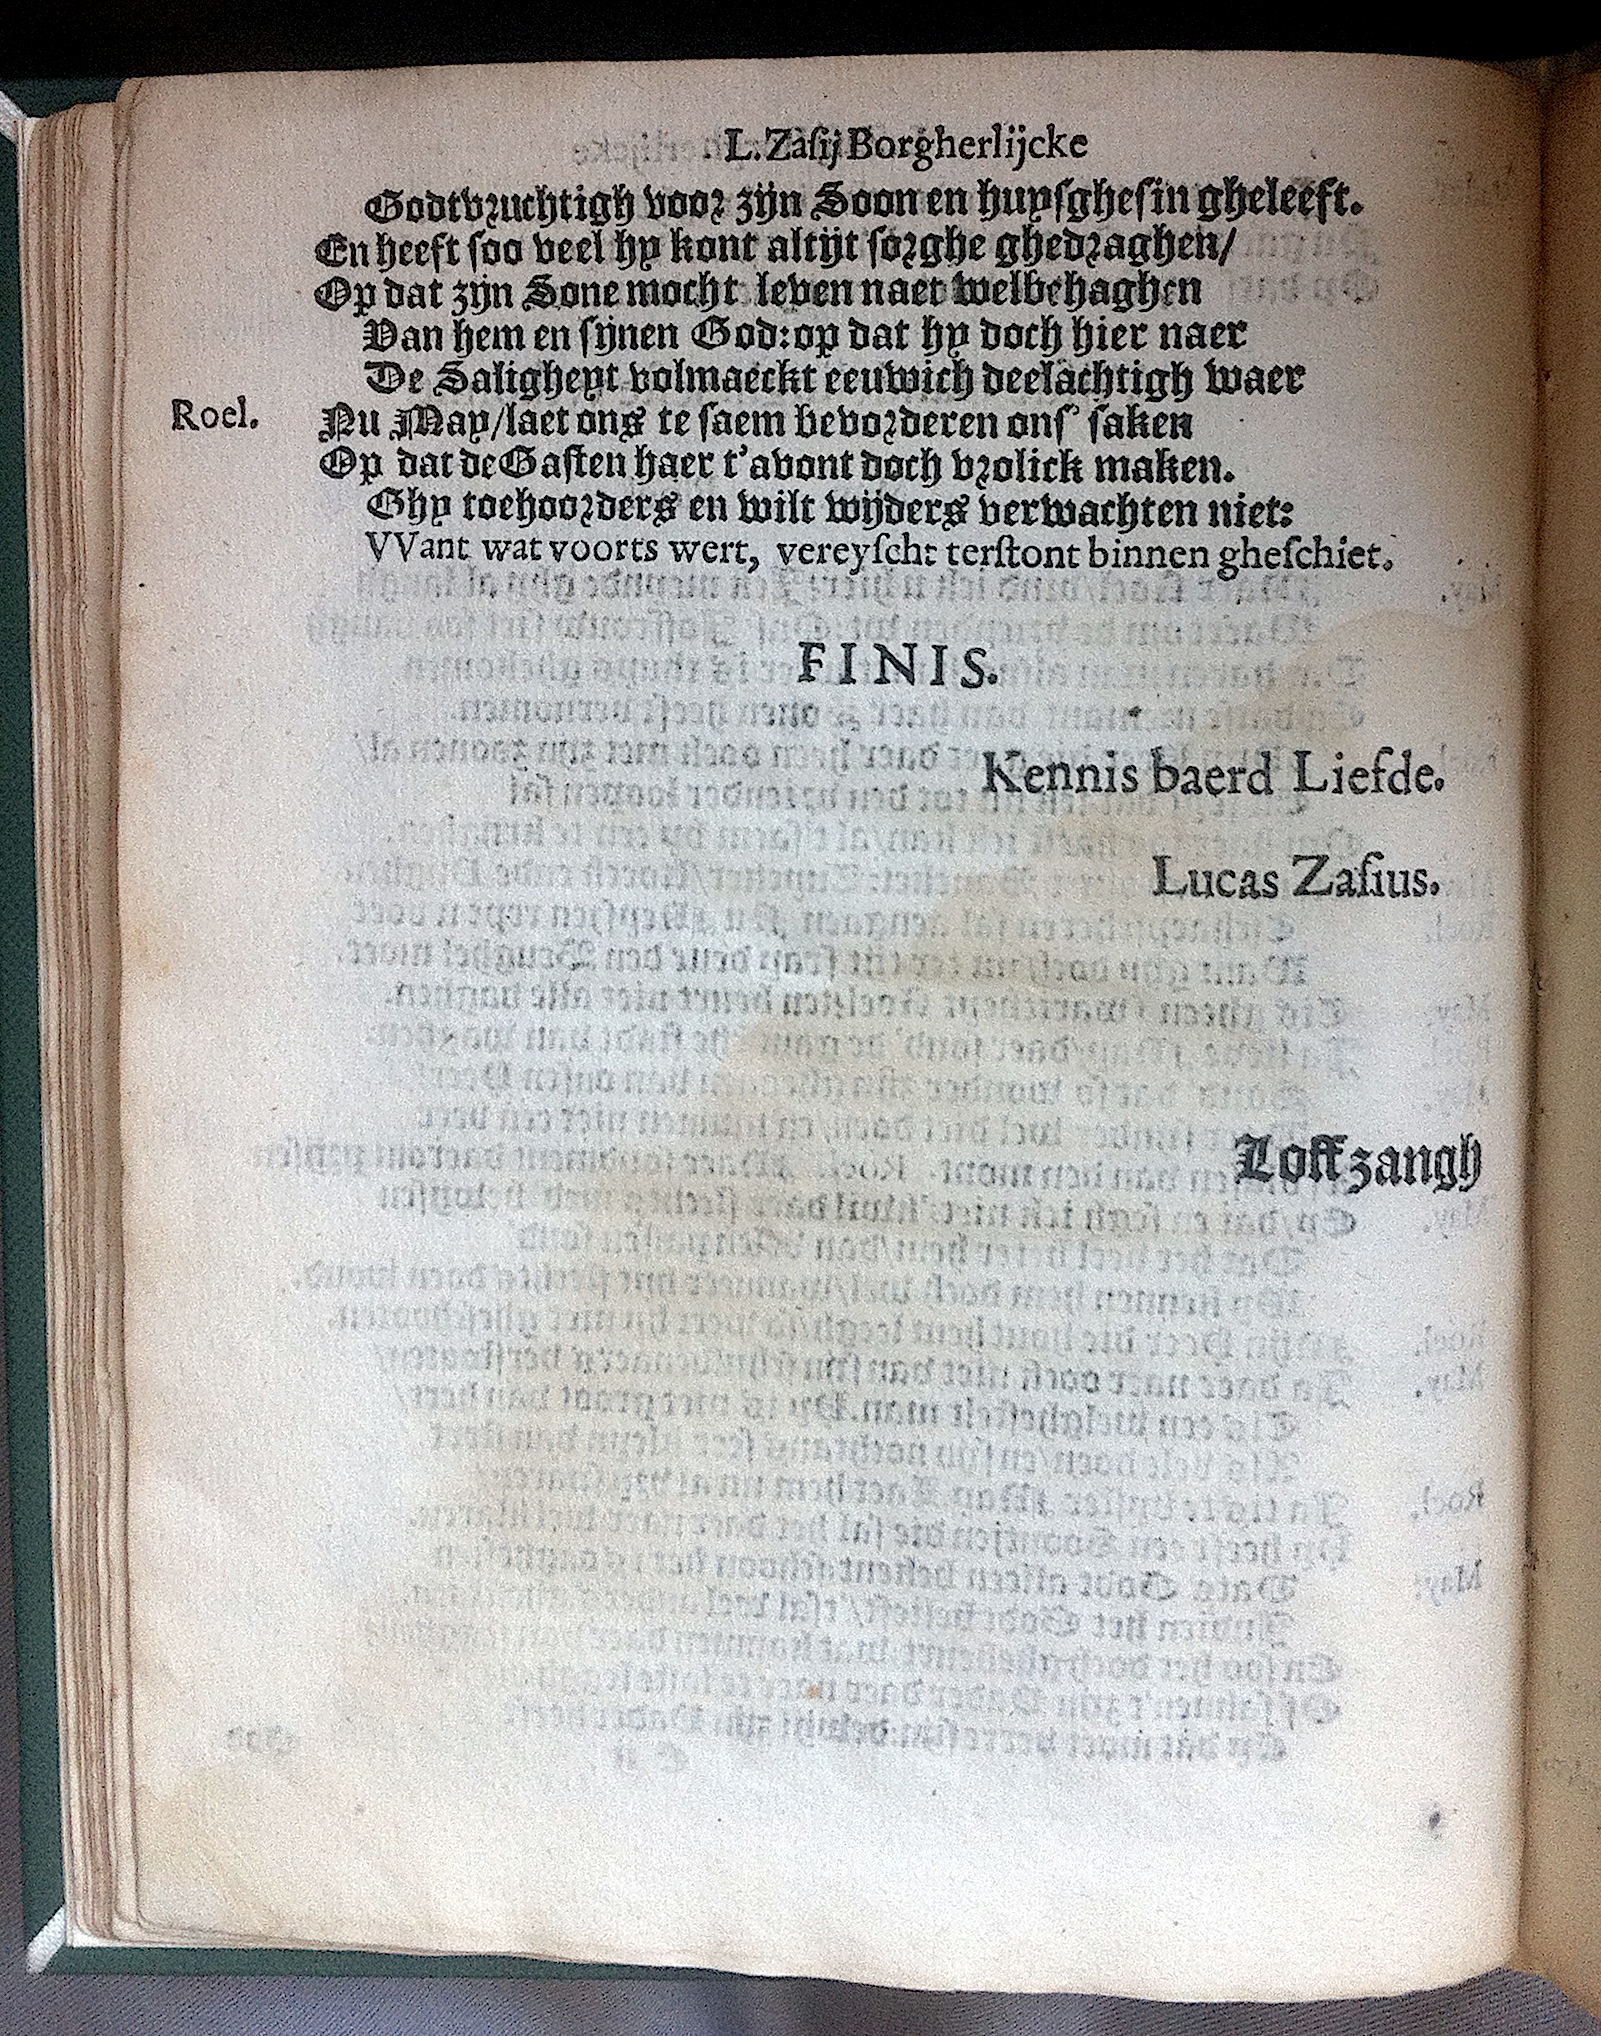 L. Zasij Borgherlijcke
Godtvruchtigh voor zijn Soon en huysghesin gheleeft.
En heeft soo veel hy kont altijt sorghe ghedraghen/
Op dat zijn Sone mocht leven naer welbehaghen
Van hem en sijnen God: op dat hy doch hier naer
De Saligheyt volmaeckt eeuwich deelachtigh waer
Roel. Nu May/laet ons te saem bevorderen ons' saken
Op dat de Gasten haer t'avont doch vrolick maken.
Ghy toehoorders en wilt wijders verwachten niet:
VVant wat voorts wert, vereyscht terstont binnen gheschiet.
FINIS.
Kennis baerd Liefde.
Lucas Zasius.
Loffzangh